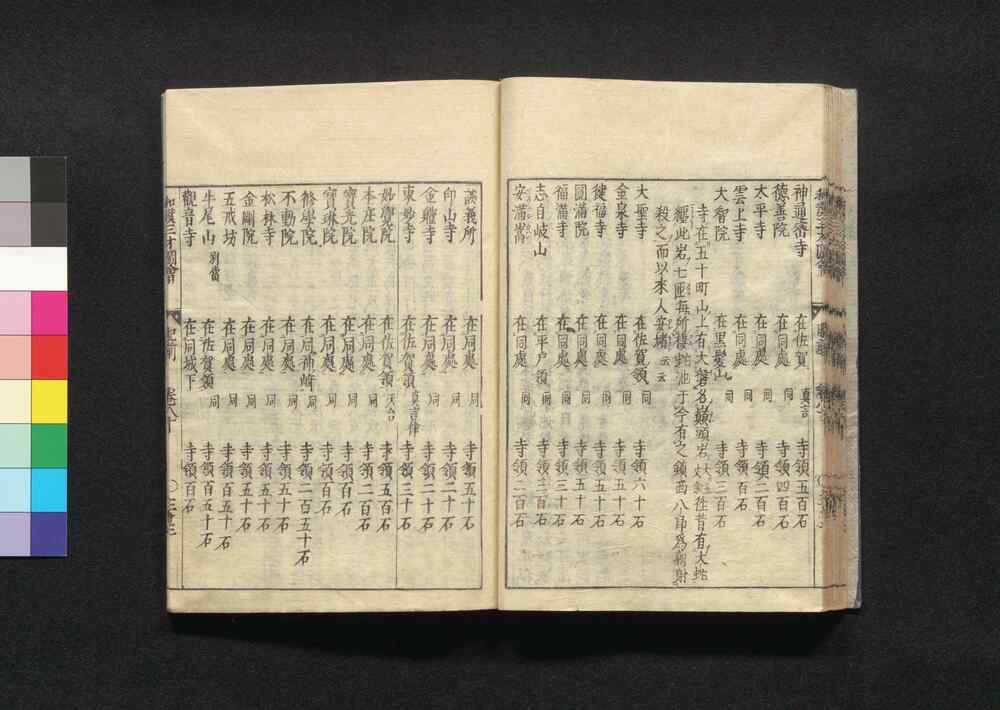 神通密寺 在佐賀 真言 寺領五百石
德善院 在同處 同 寺領四百石
太平寺 在同處 同 寺領二百石
雲上寺 在同處 同 寺領百石
大智院 在黒髪山 同 寺領三百石
寺在五十町山上有大磐名
往昔有大蛇
繞此岩七匝每所得
池于今有之鎭西八郎爲朝射
殺之而以來人安堵云云
大聖寺 在佐賀領 同 寺領六十石
金泉寺 在同處 同 寺領五十石
健福寺 在同處 同 寺領五十石
圓滿院 在同處 同 寺領五十石
福滿寺 在同處 同 寺領三十石
志自岐山 在平戸領 同 寺領三百石
安滿嵩 在同處 同 寺領二百石
談義所 在同處 同 寺領五十石
印山寺 在同處 同 寺領二十石
金鑵寺 在同處 同 寺領二十石
東妙寺 在佐賀領 真言律 寺領三十石
妙應院 在佐賀領 天台 寺領五百石
本庄院 在同處 同 寺領二百石
寶光院 在同處 同 寺領百石
寶琳院 在同處 同 寺領百石
修學院 在同 同 寺領二百五十石
不動院 在同處 同 寺領五十石
松林寺 在同處 同 寺領五十石
金剛院 在同處 同 寺領五十石
五戒坊 在同處 同 寺領百五十石
牛尾山 別當 在佐賀領 同 寺領百五十石
觀音寺 在同城下 寺領百石
和漢三才圖會 肥前 卷八十